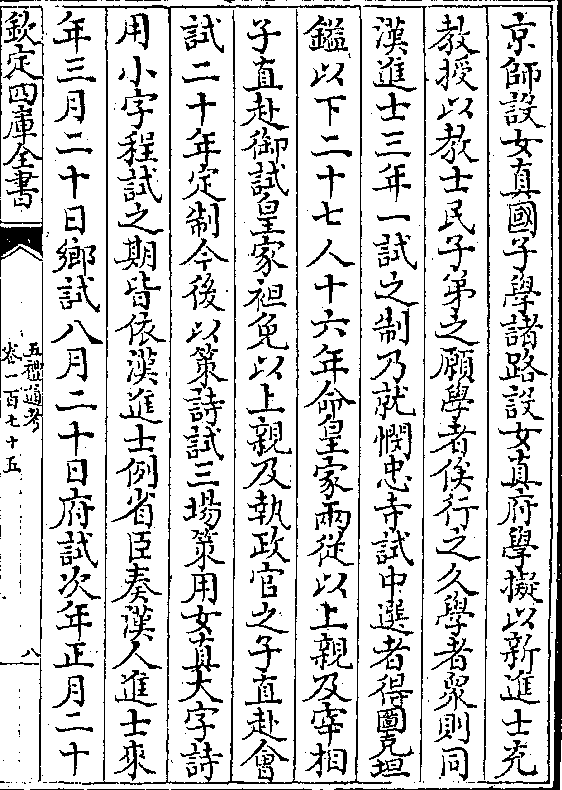 京師設女真國子學諸路設女真府學擬以新進士充
教授以教士民子弟之願學者俟行之久學者衆則同
漢進士三年一試之制乃就憫忠寺試中選者得圖克坦
鎰以下二十七人十六年命皇家兩從以上親及宰相
子直赴御試皇家袒免以上親及執政官之子直赴會
試二十年定制今後以策詩試三場策用女真大字詩
用小字程試之期皆依漢進士例省臣奏漢人進士來
年三月二十日鄉試八月二十日府試次年正月二十
欽定四庫全書
五禮通考
卷一百七十五
八